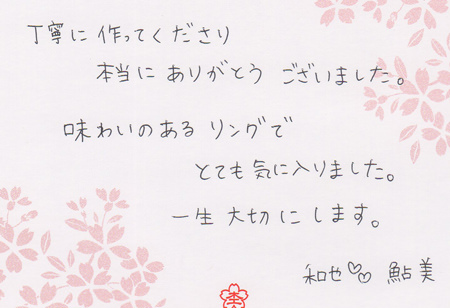 丁寧に作ってくださり
本当にありがとうございました。
味わいのあるリングで
とても気に入りました。
一生大切にします。
和也♡♡鮎美